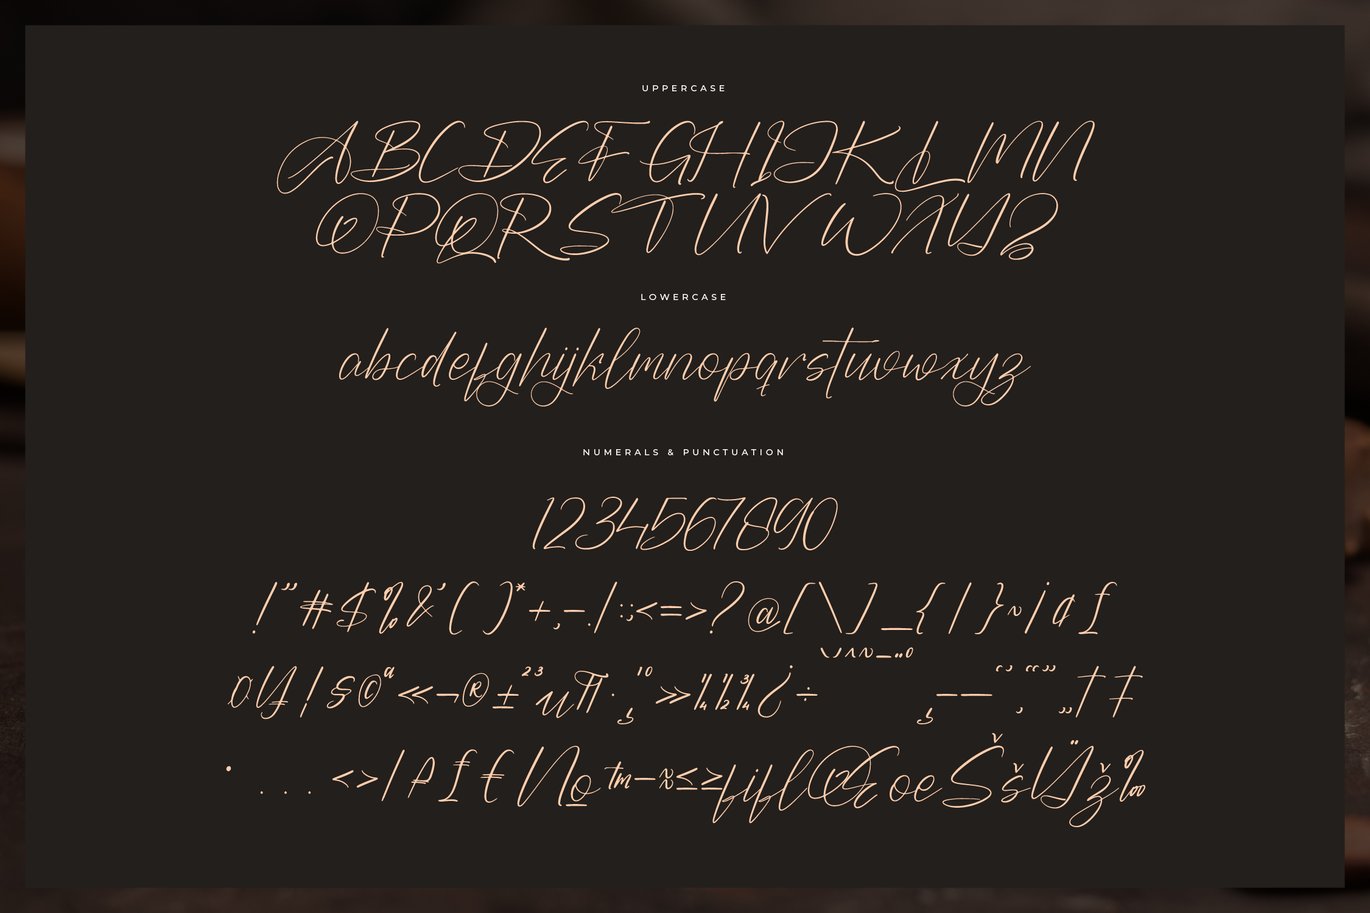 UPPERCASE
ABCDEFGHIJKLMN
OPQRSTUVWXYZ
LOWERCASE
abcdefghijklmnopqrstuvwxyz
NUMERALS & PUNCTUATION
1234567890
!"#$%&'()*+,-./:;<=>?@[\]_{|}~¡¢£
¤¥¦§©ª«¬®±²³µ¶·¸¹º»¼½¾¿÷–—‘’‚“”„†‡
•...‹›⁄₽₤€№™−≈≤≥fiflŒœŠšŸž‰